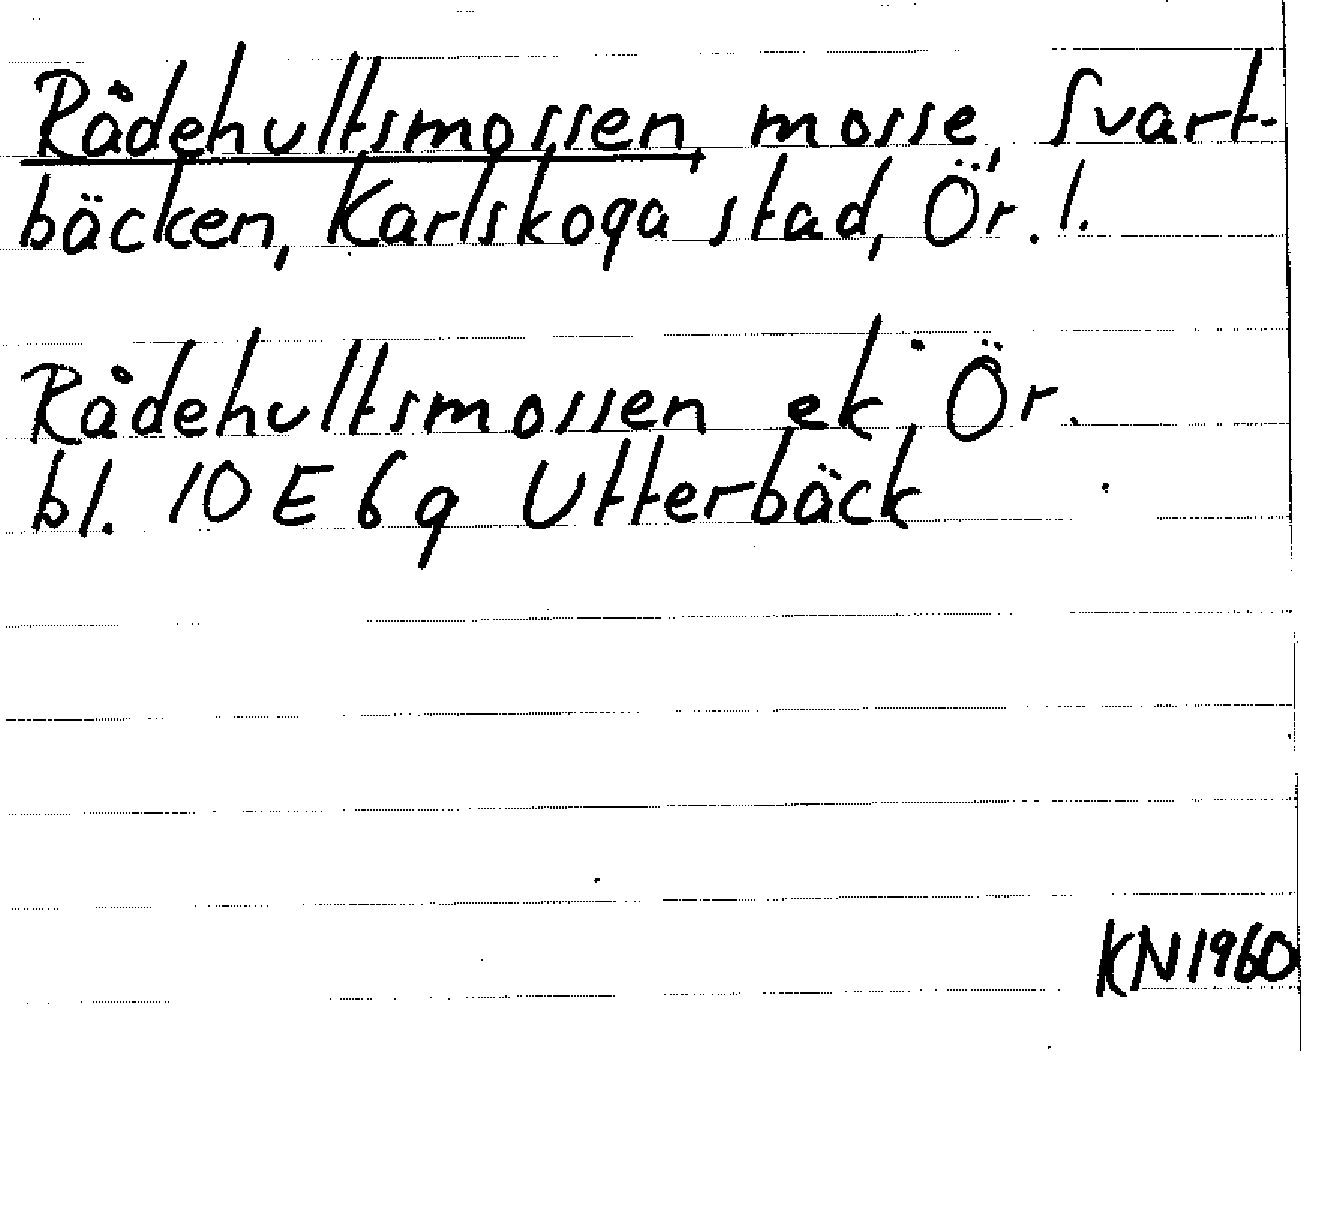 Rådehultsmossen, mosse, Svart-
bäcken, Karlskoga stad, Ör. l.
Rådehultsmossen ek Ör.
bl. 10 E 6 g Utterbäck
KN 1960